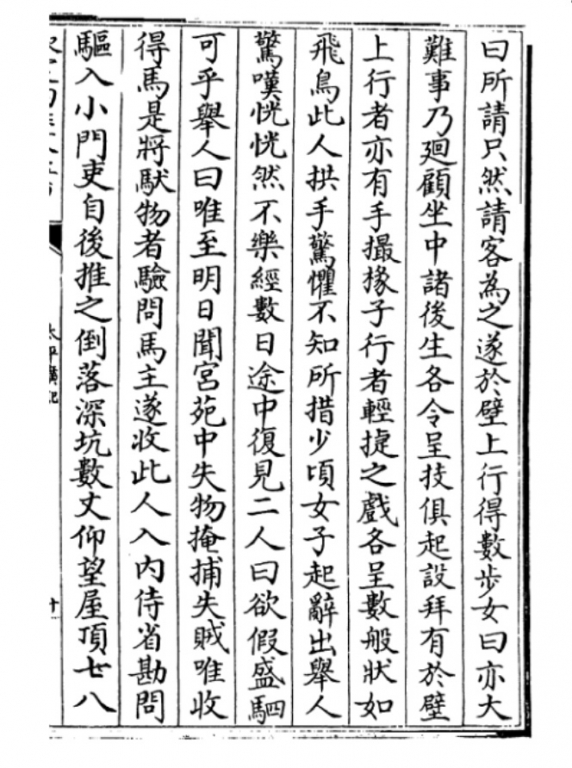 曰所請只然請客為之遂於壁上行得數步女曰亦大
難事乃廻顧坐中諸後生各令呈技俱起設拜有於壁
上行者亦有手撮椽子行者輕捷之戲各呈數般狀如
飛鳥此人拱手驚懼不知所措少頃女子起辭出舉人
驚嘆恍恍然不樂經數日途中復見二人曰欲假盛駟
可乎舉人曰唯至明日聞宮苑中失物掩捕失賊唯收
得馬是將馱物者驗問馬主遂收此人入內侍省勘問
驅入小門吏自後推之倒落深坑數丈仰望屋頂七八
太平廣記